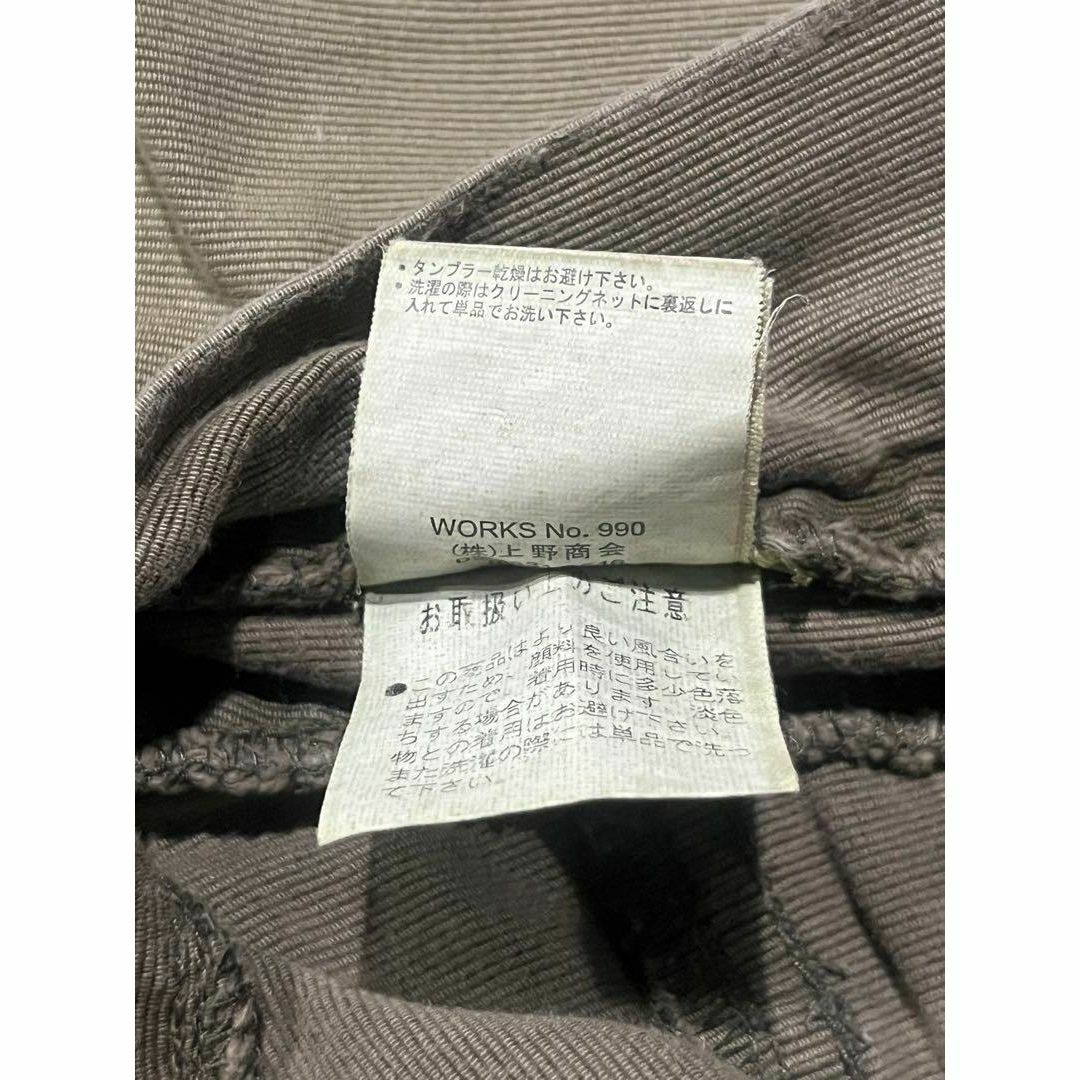 ・タンブラー乾燥はお避け下さい。
・洗濯の際はクリーニングネットに裏返しに
入れて単品でお洗い下さい。
WORKS No. 990
(株)上野商会
お取扱い上のご注意
●この商品はより良い風合いを
出すため、顔料を使用してい
ますので、着用時に多少色落
ちする場合があります。淡色
物との着用はお避け下さい
また洗濯の際には単品で洗っ
て下さい。